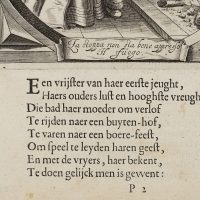 La stoppa non sta bene appresso
il fuogo.
Een vrijster van haer eerste jeught,
Haers ouders lust en hooghste vreugh
Die bad haer moeder om verlof
Te rijden naer een buyten-hof,
Te varen naer een boere-feest,
Om speel te leyden haren geest,
En met de vryers, haer bekent,
Te doen gelijck men is gewent:
P 2